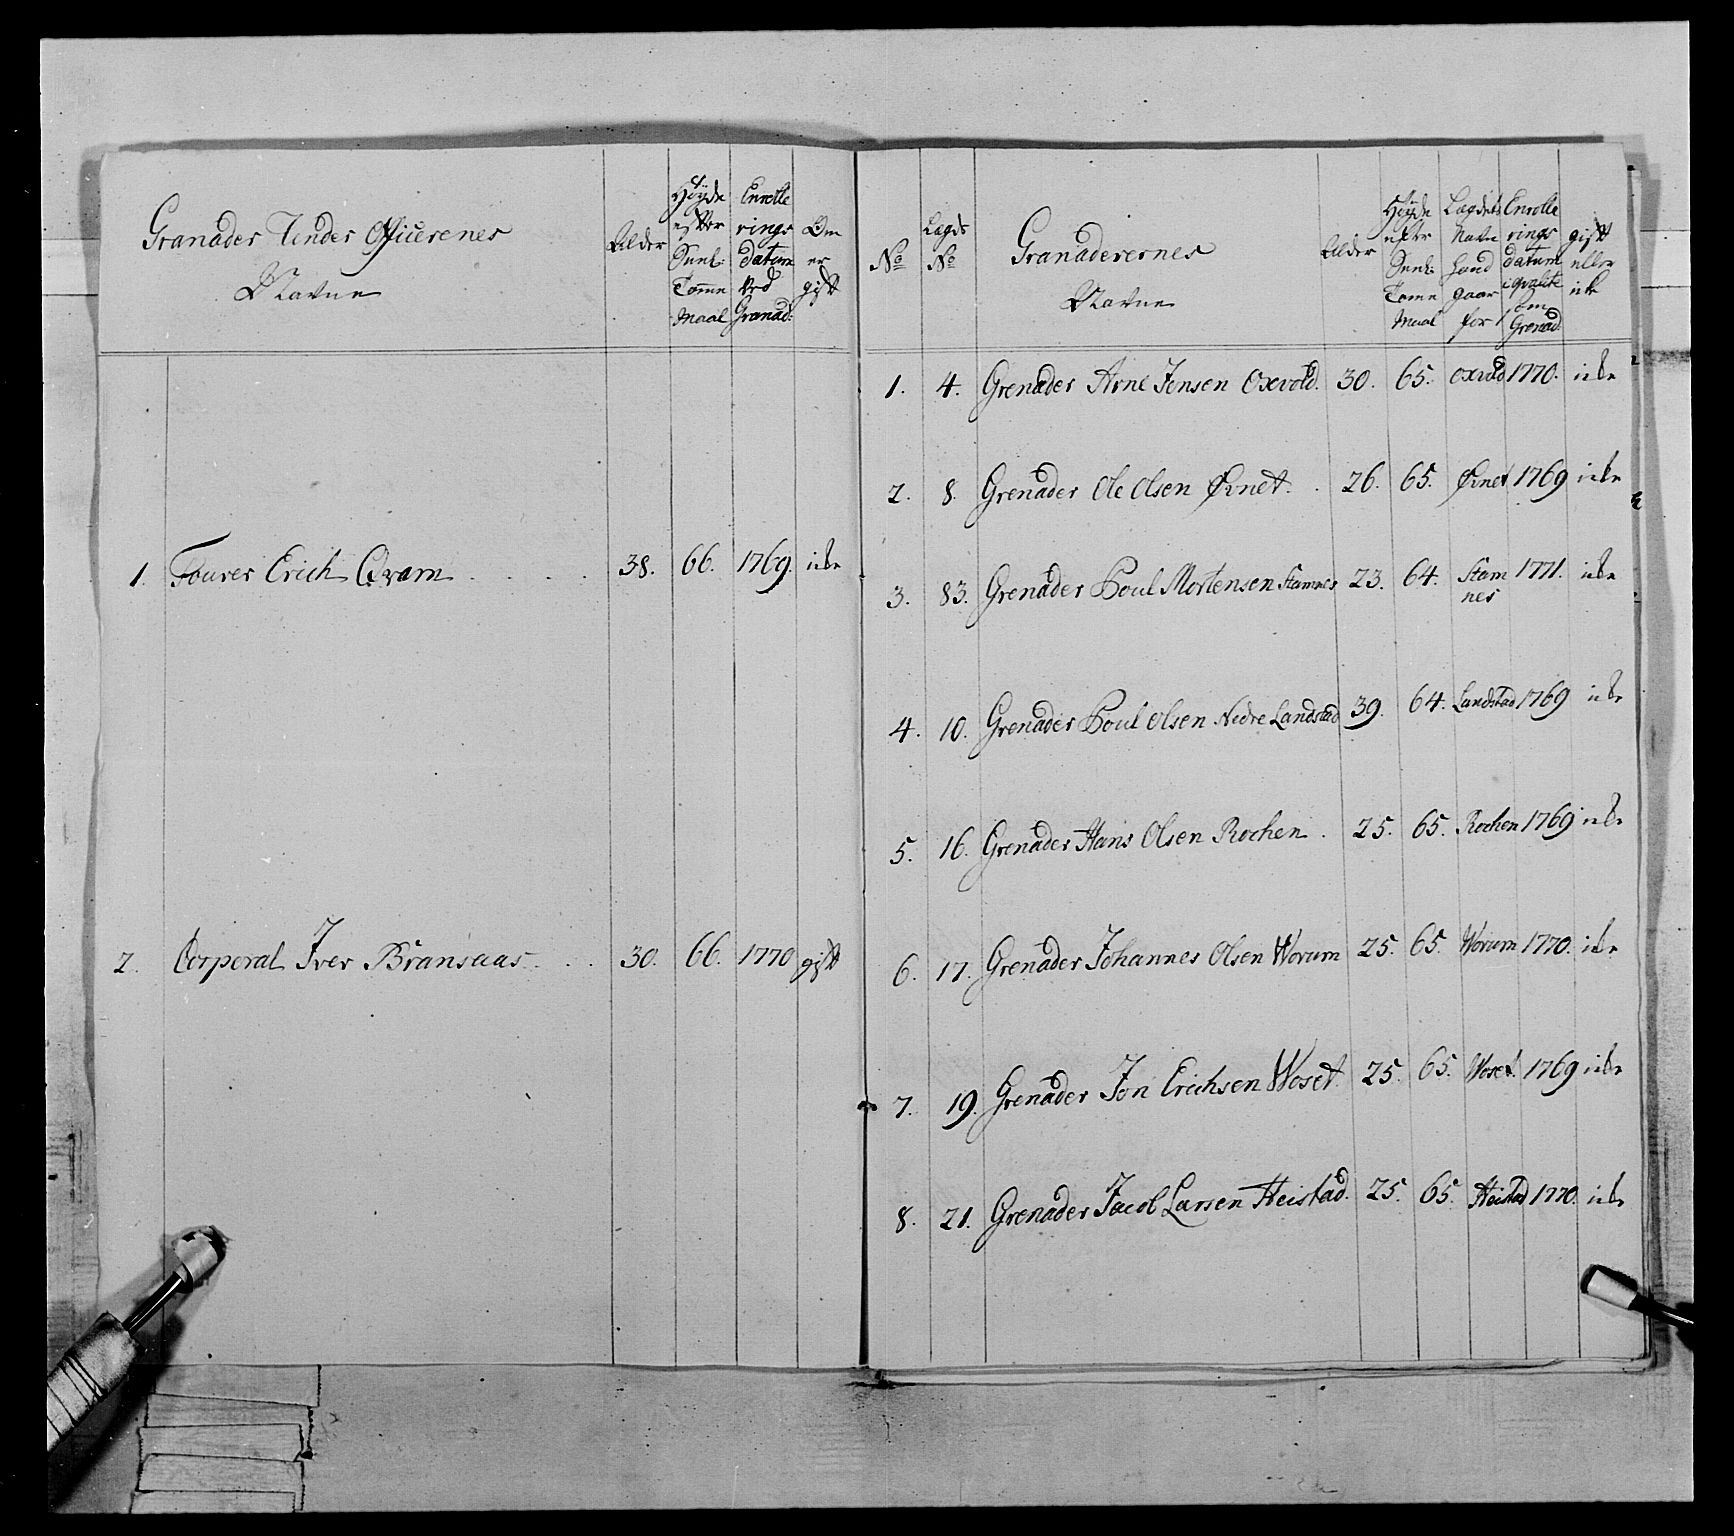 Granader Under Officerenes
Navne
Alder
Høyde
efter
Sunl:
Tomme
Maal
Enrolle
rings
datum
ved
Granad:
Om
er
gift
1. Fourer Erich Qvam 38. 66. 1769. icke
2. Corporal Iver Bransaas 30. 66. 1770 gift
No
Lægds
No
Granaderernes
Navne
Alder
Høyde
efter
Sunl:
Tome
Maal
Lægdets
Navn
hand
gaar
for
Enrolle
rings
datum
som
Grenad:
gift
eller
icke
1. 4. Grenader Arne Jensen Oxvold. 30. 65. Oxvold 1770. icke
2. 8. Grenader Ole Olsen Øvnet. 26. 65. Øvnet 1769 icke
3. 83. Grenader Poul Mortensen Stamnes 23. 64. Stam
nes 1771. icke
4. 10. Grenader Poul Olsen Nedre Landstad 39. 64. Landstad 1769 icke
5. 16. Grenader Hans Olsen Rochen. 25. 65. Rochen 1769 icke
6. 17. Grenader Johannes Olsen Worum 25. 65. Worum 1770. icke
7. 19. Grenader Jon Erichsen Woset. 25. 65. Woset. 1769 icke
8. 21. Grenader Jacob Larsen Heistad. 25. 65. Heistad 1770. icke